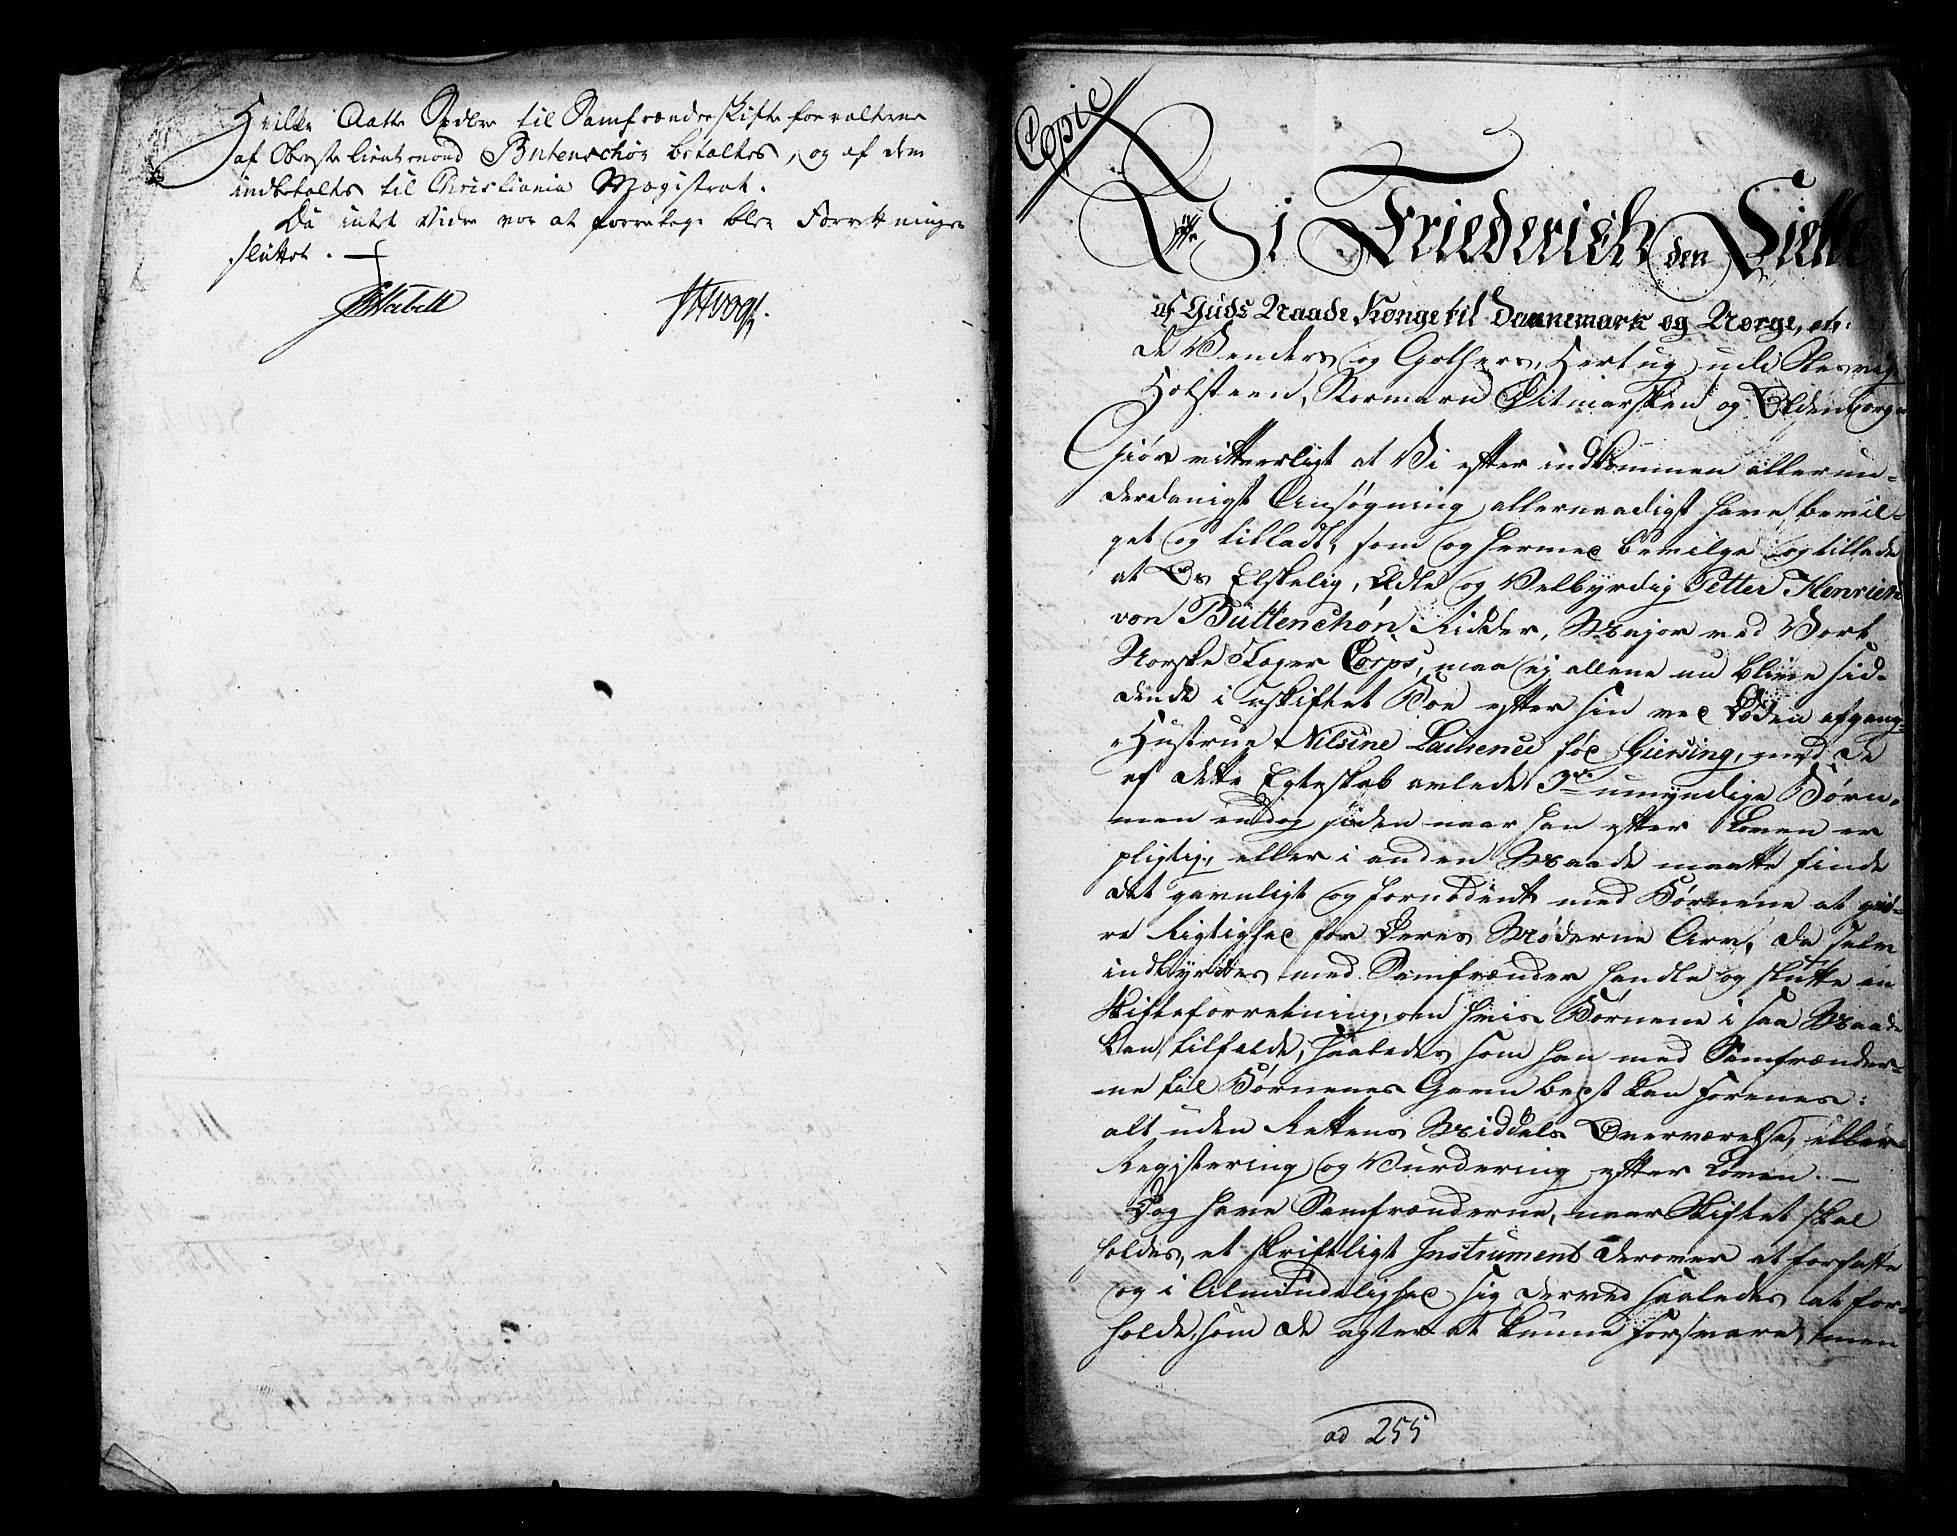 Hvilke Aatte Spdlr til Samfrænderskifteforvalterne
af Obrste Lieutenand Butenschøn betaltes, og af dem
indbetaltes til Christiania Magistrat.
Da intet Vidre var at foretage blev Forrettningen
sluttet.
Copie
Vi Friederich den Siette
af Guds Naade Konge til Dannemark og Norge, 
de Venders og Gothers, Hertug udi Slesvig
Holsteen, Stormarn Ditmarsken og Oldenborg
Giør vitterligt at Vi efter indkommen allerun-
derdanigst Ansøgning allernaadigst have bevil-
get og tilladt, som og hermed bevilge og tillade
at Os Elskelig, Ædle og Velbyrdig Petter Henrich
von Büttenchøn Ridder, Major ved Vort
Norske Jæger Corps, maa ej allene nu blive sid-
dende i uskiftet Boe efter sin ved Døden afgang-
Hustrue Nilsine Laurence fød Giersing, med de
af dette Egteskab avlede 3de umyndige Børn,
men endog siden naar han efter Loven er
pligtig, eller i anden Maade maatte finde
det gavnligt og fornødent med Børnene at giø-
re Rigtighed for Deres Møderne Arv, da selv
indbyrdes med Samfrænder handle og slutte en
Skifteforretning, om hvis Børnene i saa Maade
kan tilfalde, saaledes som han med Samfrænder-
ne til Børnenes Gavn best kan forenes:
alt uden Rettens Middels Overværelse, eller
Registering og Vurdering efter Loven. —
Dog have Samfrænderne, naar Skiftet skal
holdes, et skriftligt Instrument derover at forfatte
og i Almindelighed sig dermed saaledes at for-
holde, som de agter at kunne forsvare, men
ad 255